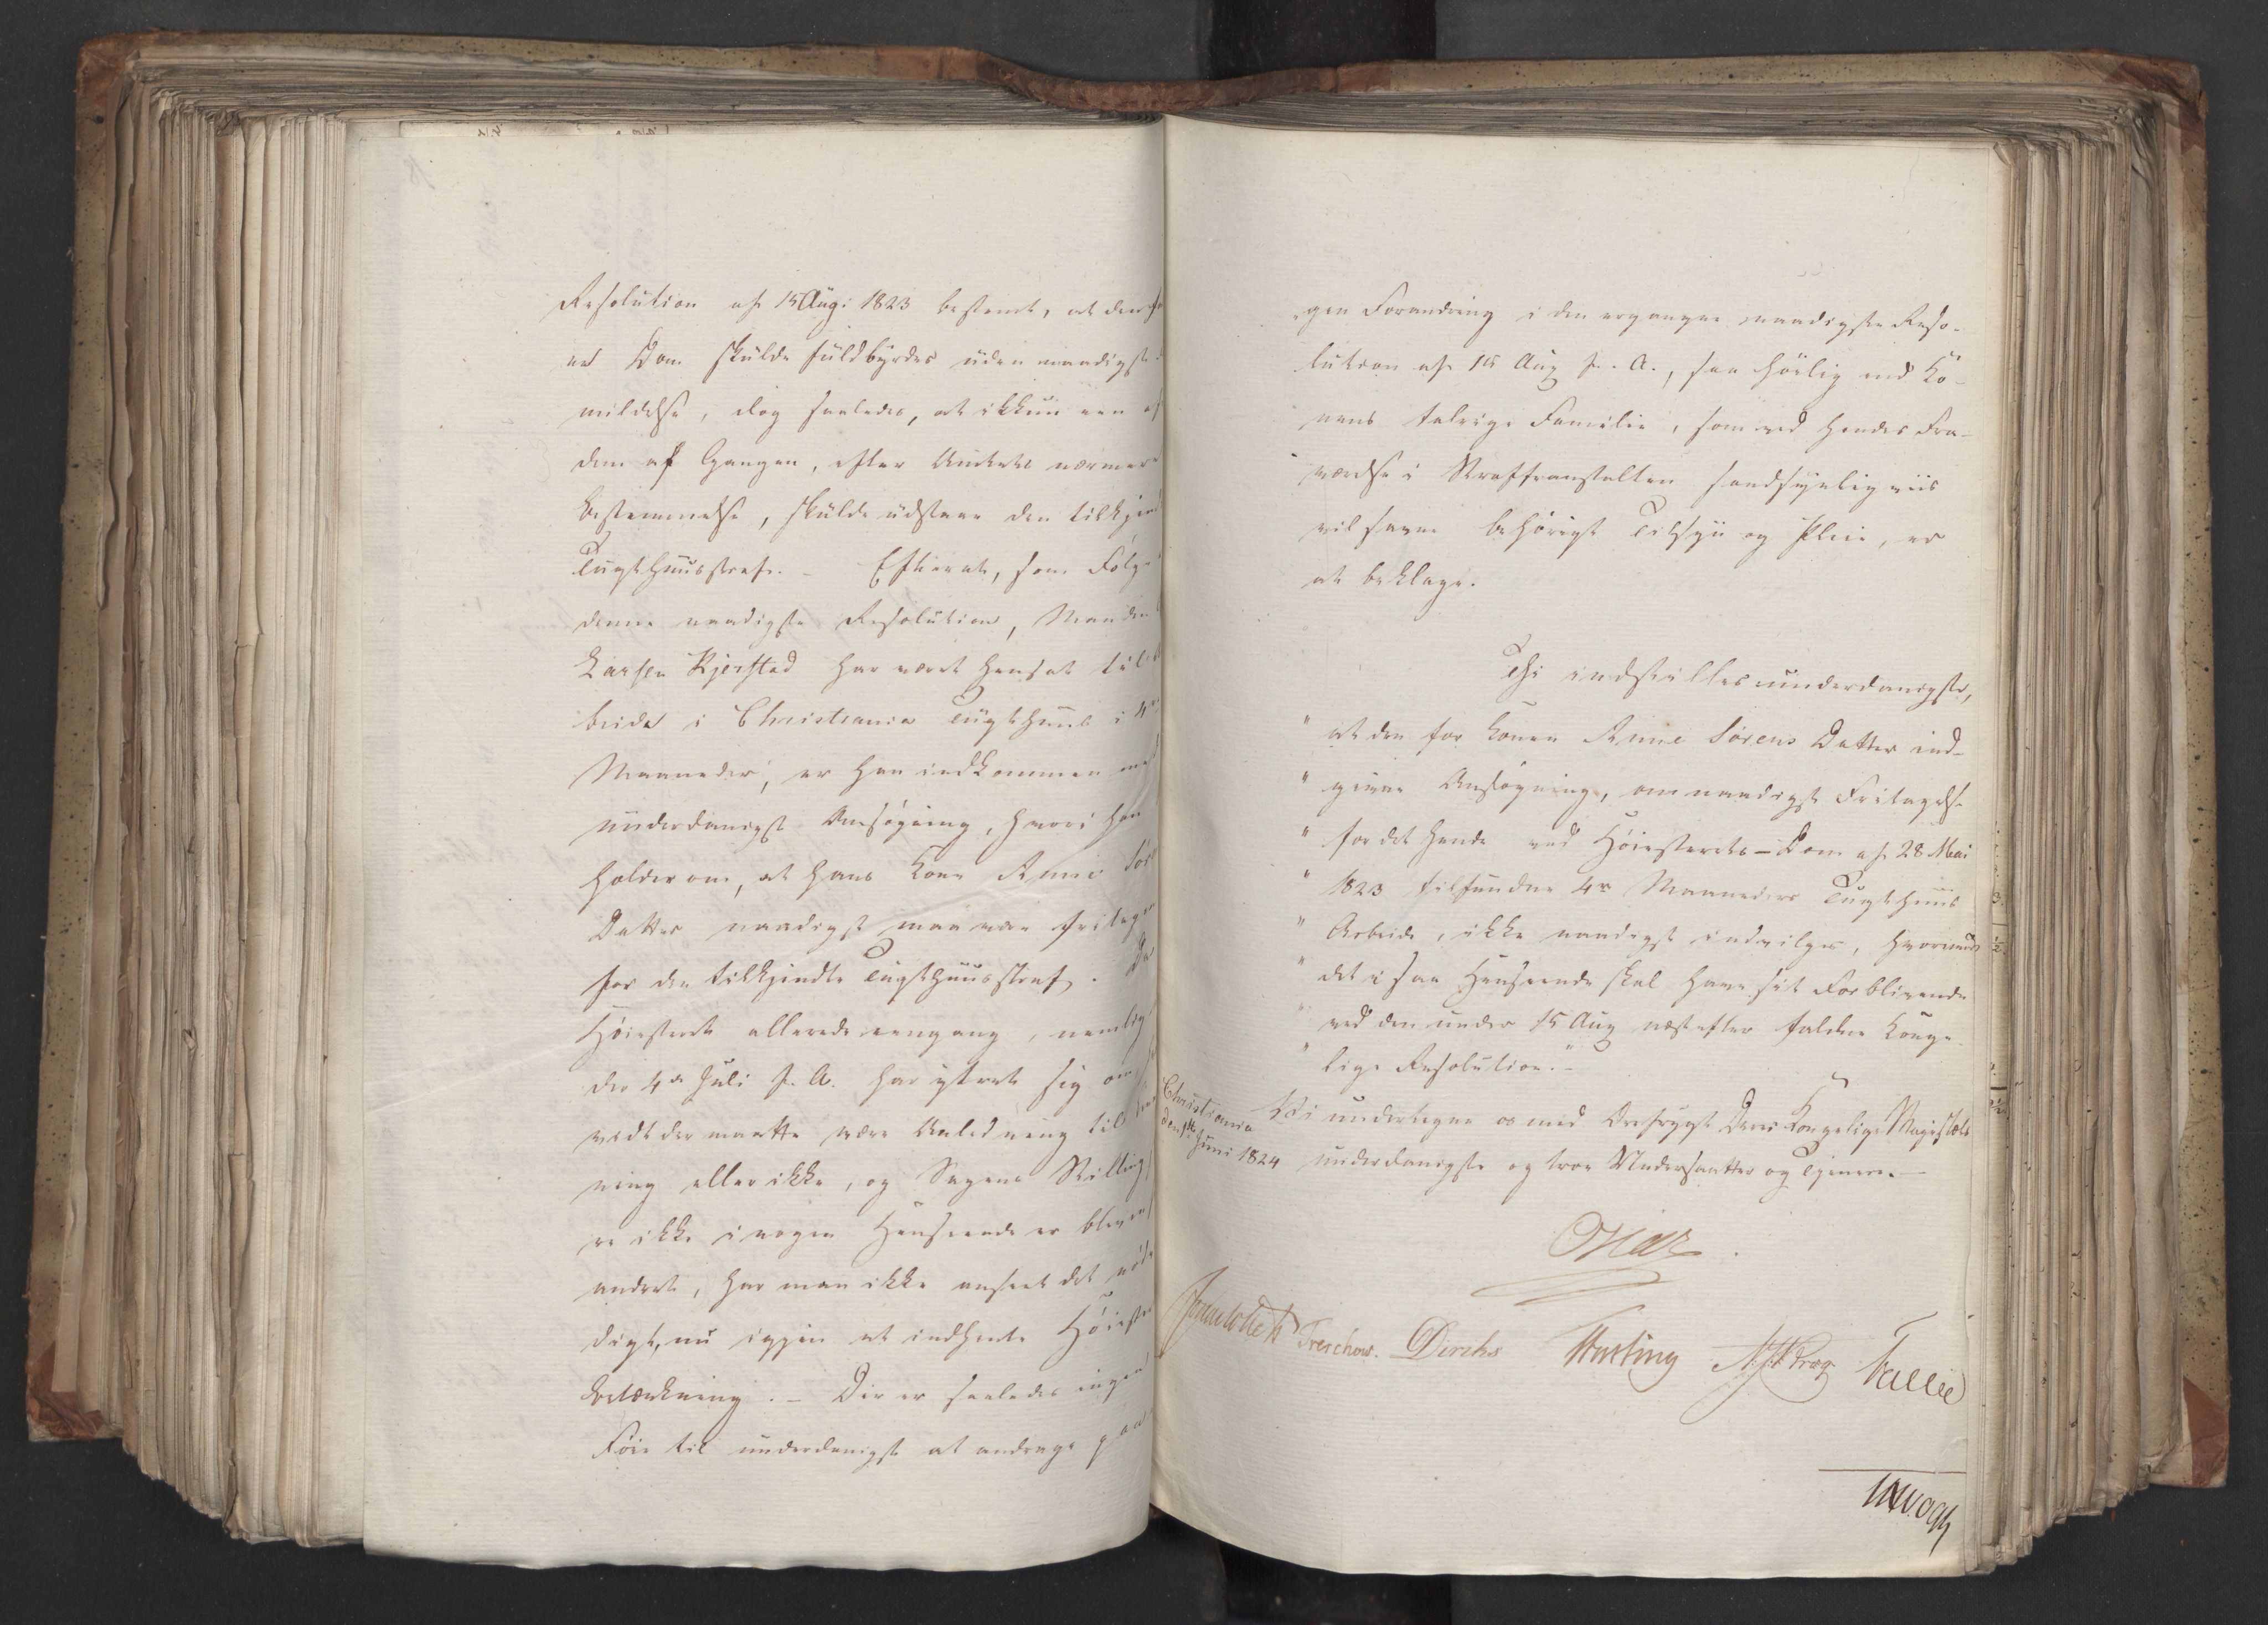 Resolution af 15 Aug: 1823 bestemt, at den
Dom skulde fuldbyrdes uden naadigst
mildelse, dog saaledes, at ikkun een af
dem af Gangen, efter Amtets nærmere
Bestemmelse, skulde udstaae den tilkjend
Tugthuusstraf. – Efterat, som Følge
denne naadigste Resolution, Manden
Larsen Kjerstad har været hensat til
beide i Christiania Tugthuus i 4re
Maaneder, er han indkommen med
underdanigst Ansøgning, hvori han
holder om, at hans Kone Anne Sør
Datter naadigst maa være fritagen
for den tilkjendte Tugthuusstraf. Da
Høiesteret allerede eengang, nemlig
den 4de Juli f. A. har yttret sig om,
vidt der maatte være Anledning til
ning eller ikke, og Sagens Stilling
re ikke i nogen Henseende er bleven
andret, har man ikke anseet det nød
digt, nu igjen at indhente Høieste
Betænkning. – Der er saaledes ingen
Føie til underdanigst at andrage paa
gen Forandring i den ergangne naadigste Reso-
lution af 15 Aug f. A., saa høilig end Ko-
nens talrige Familie, som ved hendes Fra-
værelse i Straffeanstalten sandsynligviis
vil savne behørigt Tilsyn og Pleie, er
at beklage.
Thi indstilles underdanigst,
" at den for Konen Anne Sørens Datter ind-
" givne Ansøgning, om naadigst Fritagelse
" for det hende ved Høiesterets-Dom af 28 Mai
" 1823 tilfundne 4re Maaneders Tugthuus
" Arbeide, ikke naadigst indvilges, hvorimod
" det i saa Henseende skal have sit Forblivende
" ved den under 15 Aug næstefter faldne Konge-
" lige Resolution." –
Christiania
den 1ste Juni 1824
Vi undertegne os med Ærefrygt Deres Kongelige Majestæts
underdanigste og troe Undersaatter og Tjenere. –
Oscar.
Jonas Collett Treschow. Diriks Fasting Krog Falsen
Vogt